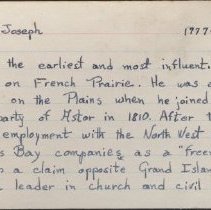 Joseph 1777
the earliest and most influent
on French Prairie. He was
on the Plains when he joined
party of Astor in 1810. After
employment with the North West
Bay companies as a "free
a claim opposite Grand Islan
leader in church and civil